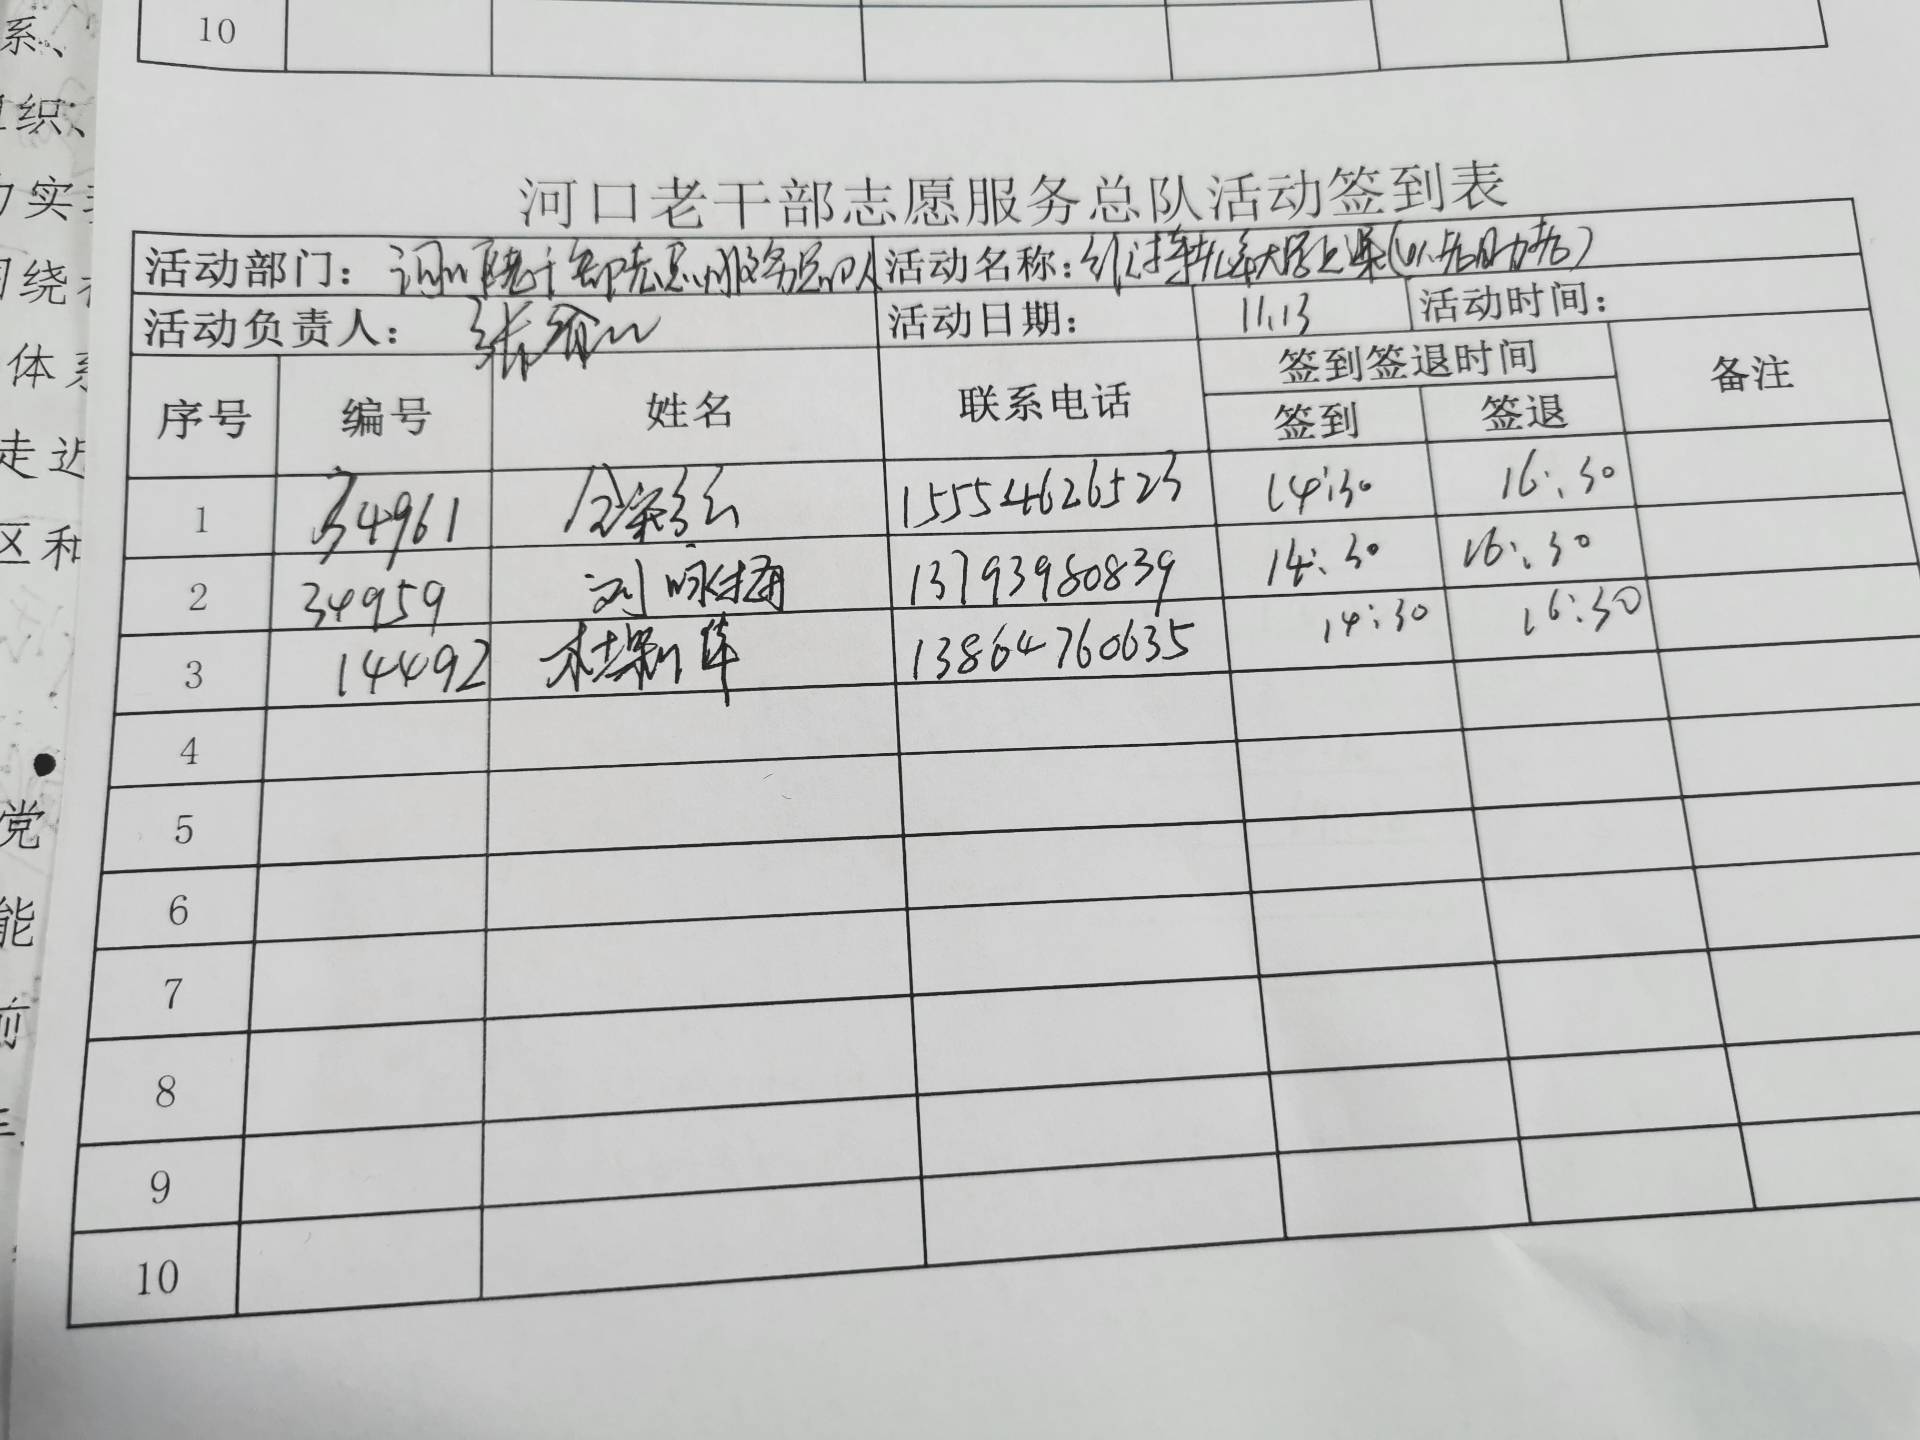 系、
织、
实
围绕
体系
走近
区和
党
能
前
10
河口老干部志愿服务总队活动签到表
活动部门: 河口老干部志愿服务总队 活动名称: 维持老年大学上课(以老助老)
活动负责人: 张 活动日期: 11.13 活动时间:
序号 编号 姓名 联系电话 签到签退时间 备注
签到 签退
1 34961 15554626523 14:30 16:30
2 34959 刘咏梅 13793980839 14:30 16:30
3 14492 杜新华 13864760635 14:30 16:30
4
5
6
7
8
9
10